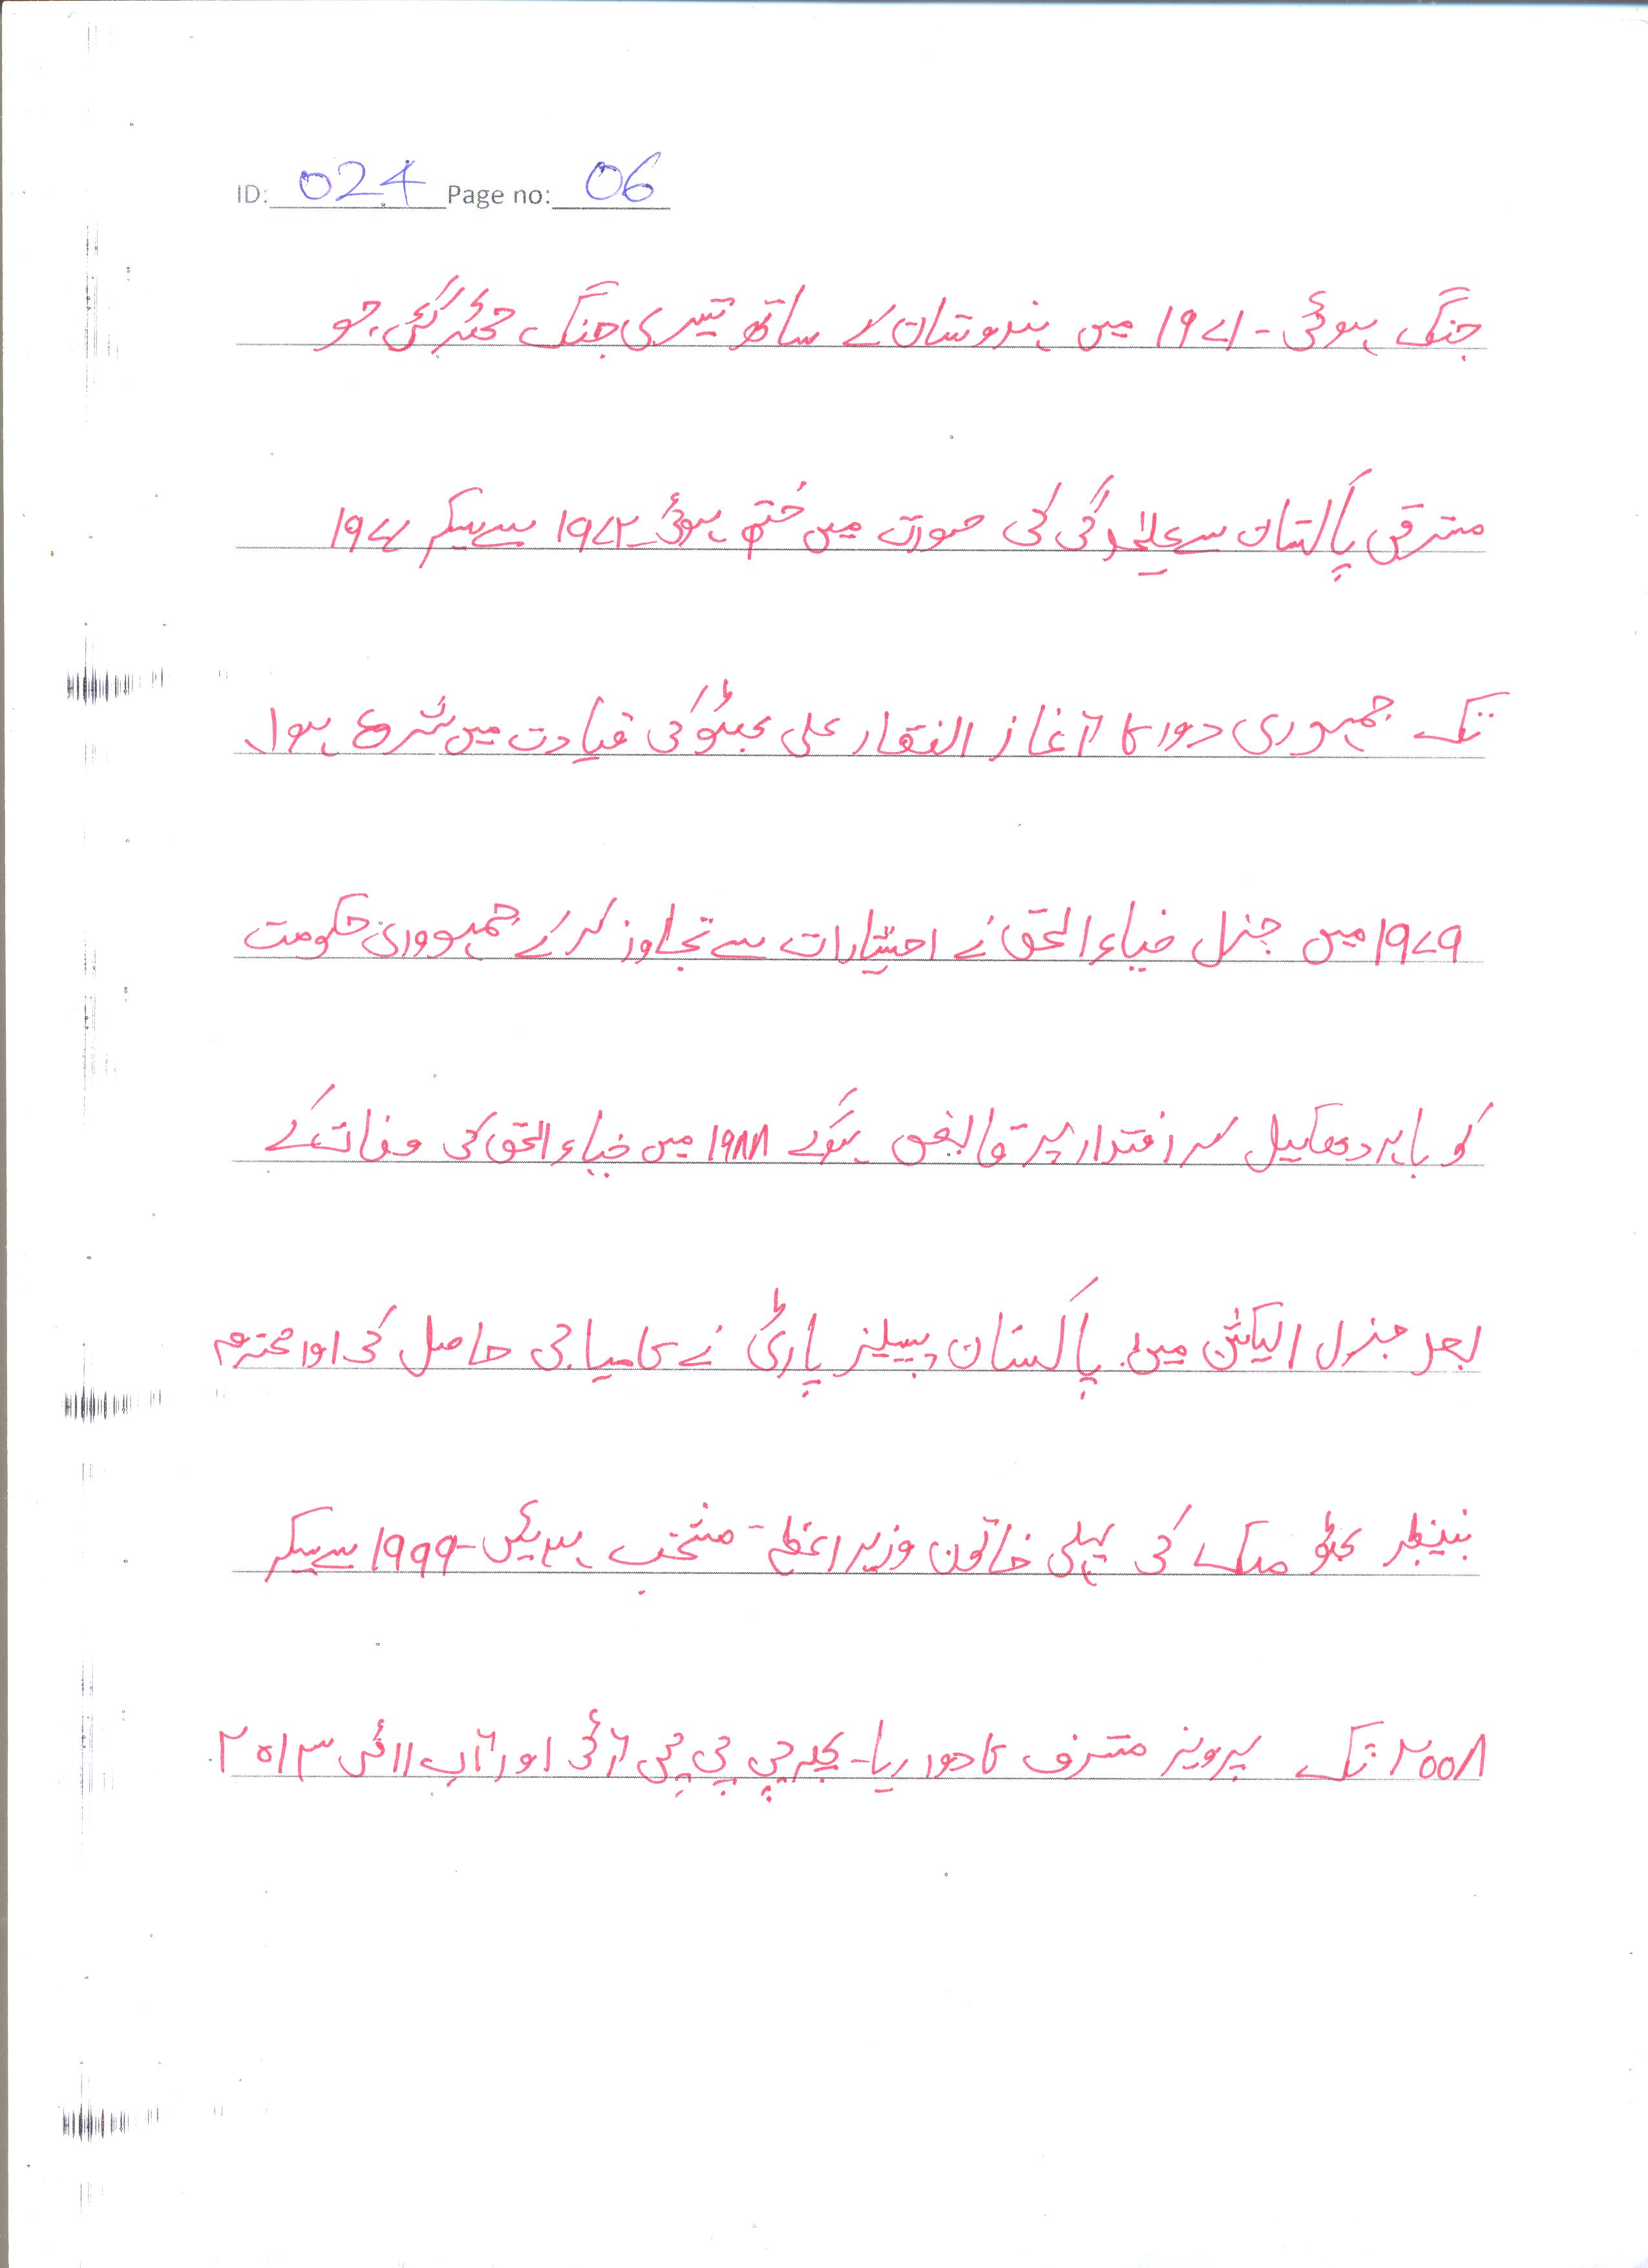 ID: 024 Page no: 06
جنگ ہوئی۔ ۱۹۷۱ میں ہندوستان کے ساتھ تیسری جنگ چھڑ گئی، جو
مشرقی پاکستان سے علیحدگی کی صورت میں ختم ہوئی۔ ۱۹۷۲ سے لیکر ۱۹۷۷
تک جمہوری دور کا آغاز الفقار علی بھٹو کی قیادت میں شروع ہوا
۱۹۷۹ میں جنرل ضیاء الحق نے اختیارات سے تجاوز کر کے جمہووری حکومت
کو باہر دھکیل کر اقتدار پر قابض ہوگے ۱۹۸۸ میں ضیاء الحق کی وفات کے
بعد جنرل الیکشن میں پاکستان پیپلز پارٹی نے کامیابی حاصل کی اور محترم
بینظیر بھٹو ملک کی پہلی خاتون وزیر اعظم منتخب ہوئیں۔ ۱۹۹۹ سے لیکر
۲۰۰۸ تک پرویز مشرف کا دور رہا۔ پھر پی پی پی آئی اور آب ۲۰۱۳